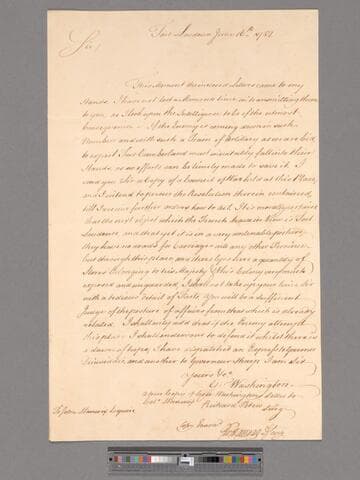 Fort Loudoun June 16th 1758
Sir,
This Moment the inclosed Letters came to my
Hands. I have not lost a Moments time in transmitting them
to you, as I look upon the Intelligence to be of the utmost
Consequence. If the Enemy is coming down in such
Numbers and with such a Train of Artillery as we are told,
to expect Fort Cumberland must inevitably fall into their
Hands, as no efforts can be timely made to save it. I
send you the a Copy of a Council of War held at this Place,
and I intend to pursue the Resolution therein contained,
till I receive further orders how to act. It is morally certain
that the next object which the French have in View is Fort
Loudoun, and that yet it is in a very untenable posture
they have no roads for Carriages into any other Province,
but through this place and there lyes here a quantity of
Stores belonging to his Majesty & this Colony very much
exposed and unguarded. I shall not take up your time Sir
with a tedious detail of Facts. You will be a sufficient
Judge of the posture of affairs from that which is already
related. I shall only add that if the Enemy attempt
this place I shall endeavour to defend it whilst there is
a dawn of hope. I have dispatched an Express to Governor
Dinwiddie, and another to Governor Sharpe. I am Sir
Yours &c.
G. Washington
a true Copy of Colo. Washington's Letter to
Colo. Stanwix
To John Stanwix Esquire